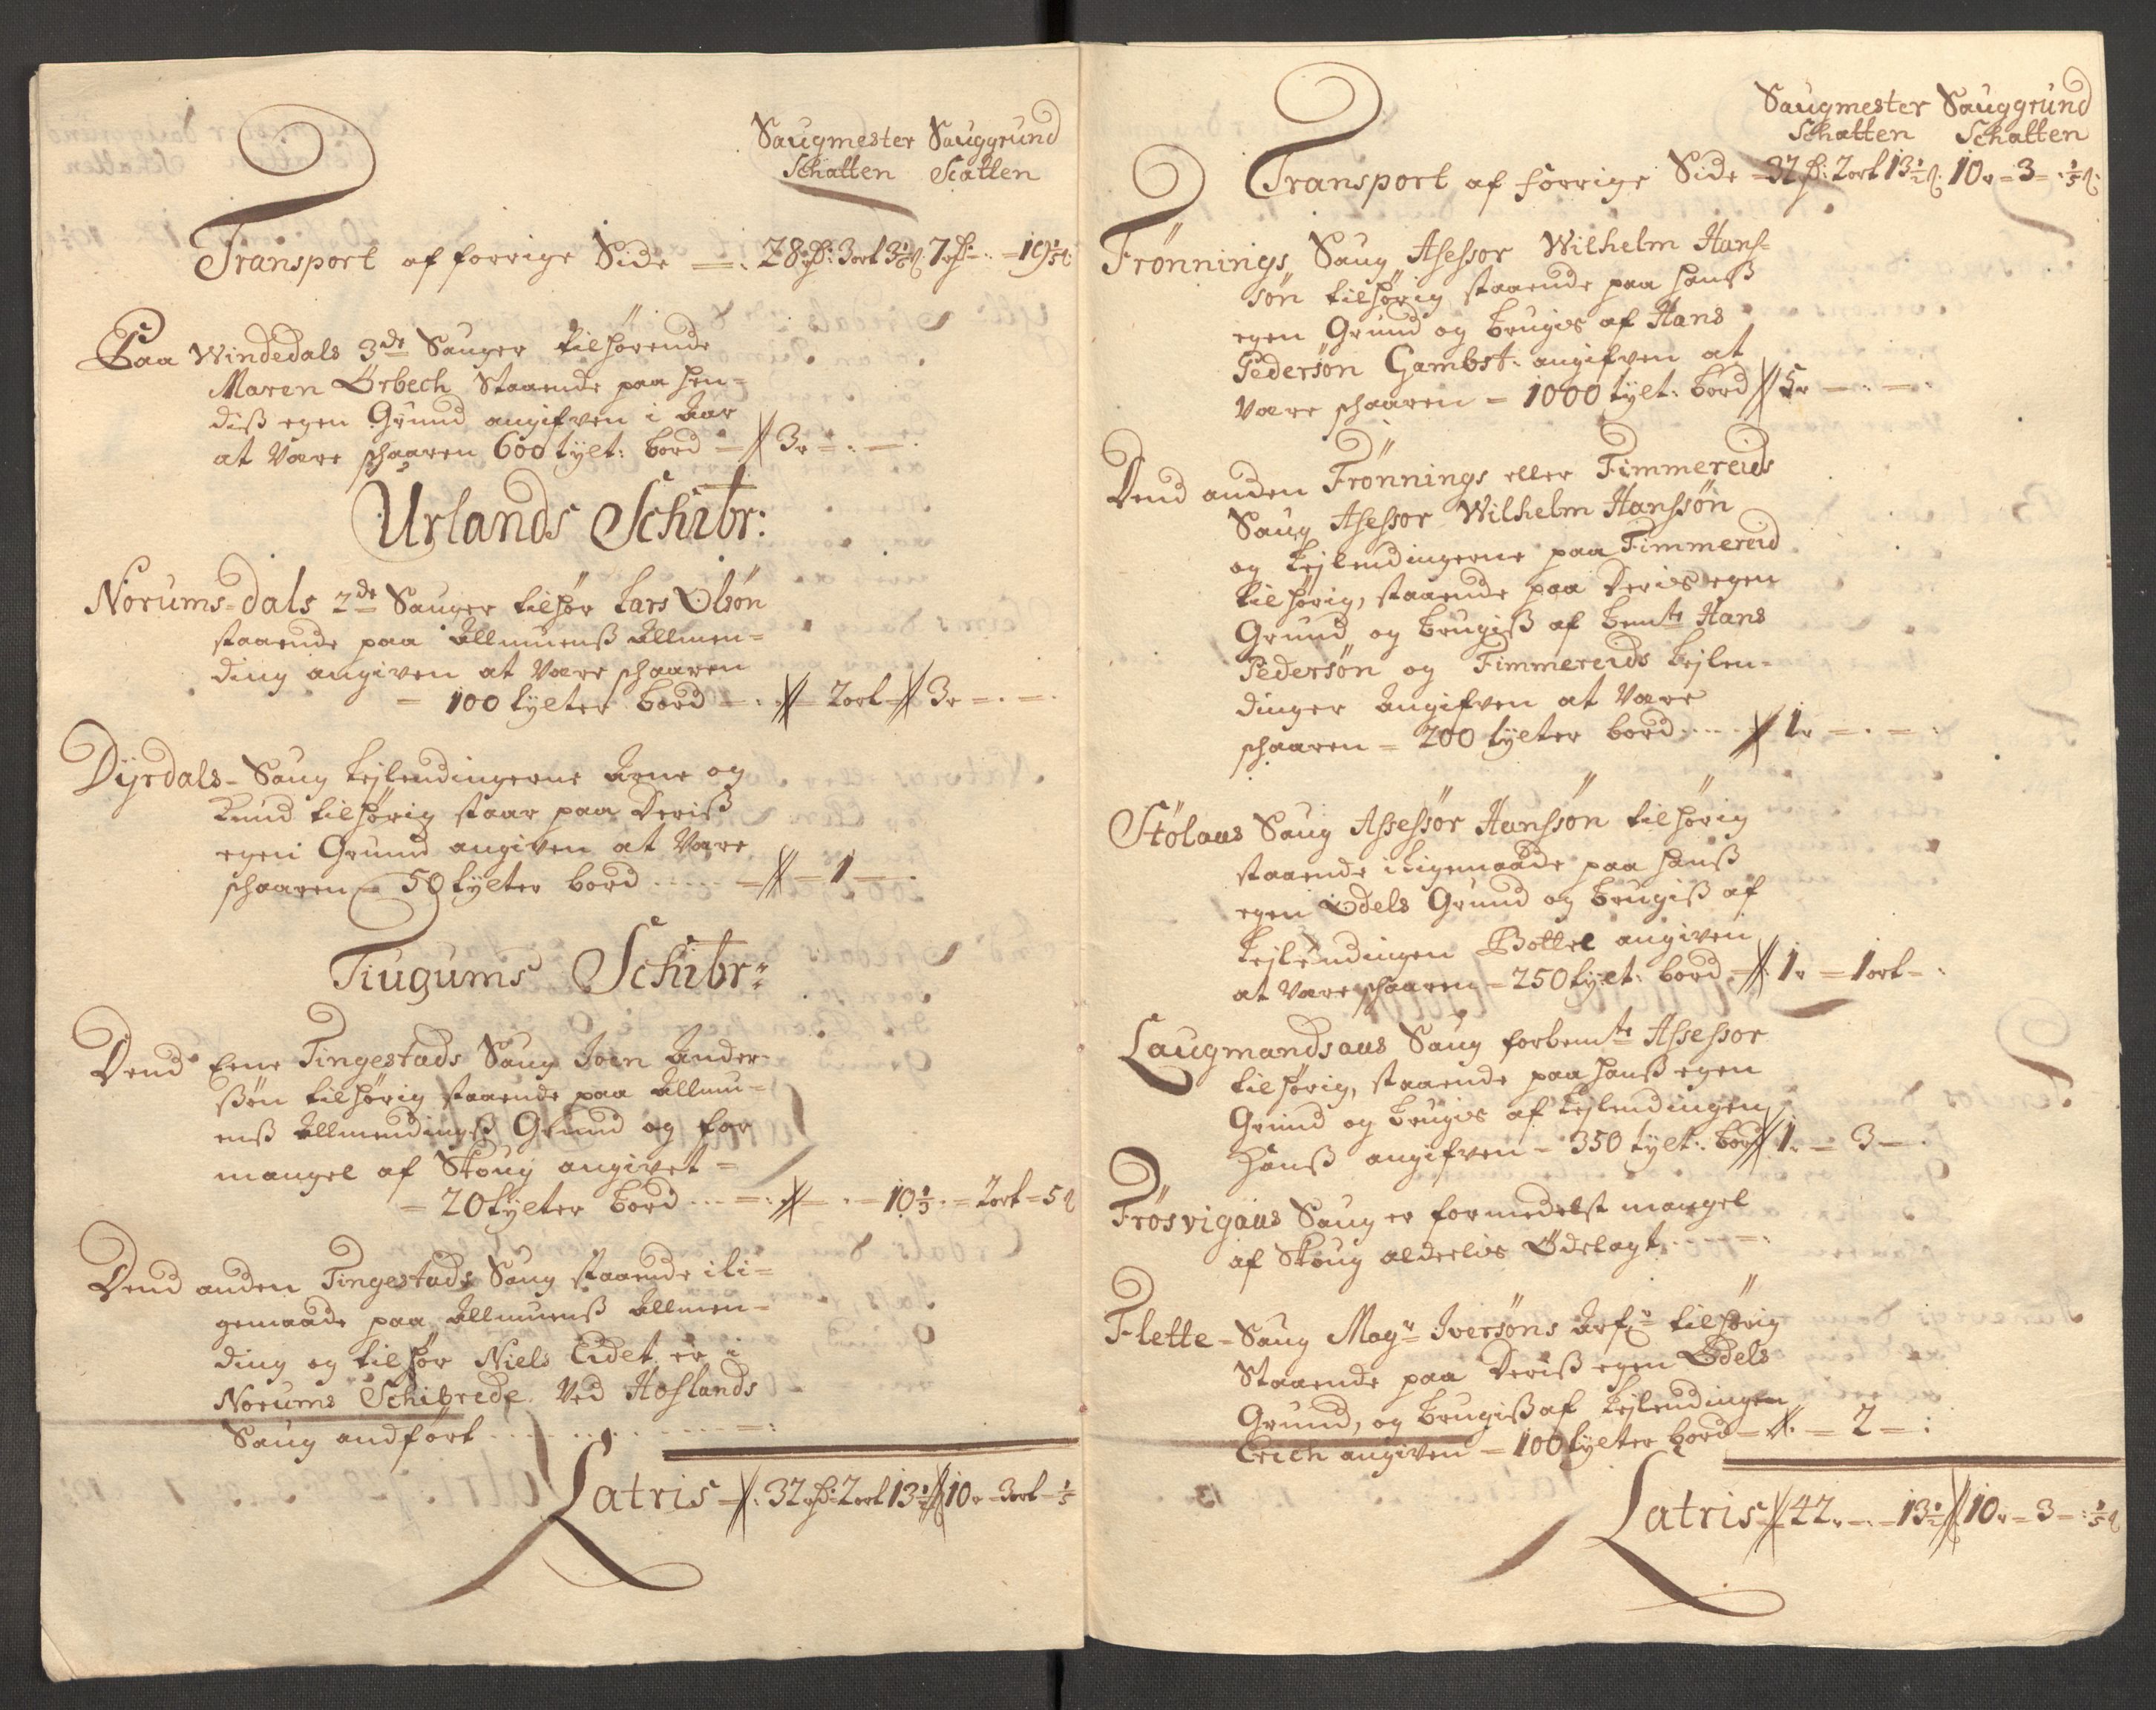 Saugmester Sauggrund
Schatten Scatten
Transport af forrige Side 28 rd: 3 ort 3 7 rd: 19
Paa Windedals 3de Sauger tilhørende
Maren Örbech Staaende paa hen-
diß egen Grund angifven i Aar
at Være schaaren 600 tylt: bord 3r
Urlands Schibr:
Norums-dals 2de Sauger tilhør Lars Olsön
staaende paa Allmuenß Allmen-
ding angiven at Være schaaren
100 tylter bord 2 ort 3r
Dyrdals-Saug Lejlendingerne Arne og
Knud tilhørig staar paa Deriß
egen Grund angiven at Være
schaaren 50 tylter bord 1
Tiugums Schibr:
Dend Eene Tingestads Saug Joen Ander-
ßön tilhørig staaende paa Allmu-
enß Allmendingß Grund og for
mangel af Skoug angivet
20 tylter bord 10 1/3 2 ort 5
Dend anden Tingestads Saug staaende i li-
gemaade paa Allmuenß Allmen-
ding og tilhør Niels Eidet er i
Norums Schibrede Ved Hoflands
Saug andført
Latris 32 rd: 2 ort 13 1/2 10r 3 ort 1/5
Saugmester Sauggrund
Schatten Schatten
Transport af forrige Side 32 rd: 2 ort 13 1/2 10r 3 1/5
Frönnings Saug Assessor Wilhelm Hans-
sön tilhørig staaende paa hanß
egen Grund og brugis af Hans
Pedersön Gambst: angifven at
Være schaaren 1000 tylt: bord 5r
Dend anden Frönnings eller Timmereids
Saug Assessor Wilhelm Hanssön
og Lejlendingerne paa Timmereid
tilhørig, staaende paa Deris egen
Grund og brugiß af bemte Hans
Pedersön og Timmereids Lejlen-
dinger Angifven at Være
schaaren 200 tylter bord 1r
Stölaas Saug Assessor Hanssön tilhørig
staaende i ligemaade paa hanß
egen Odels Grund og brugiß af
Lejlendingen Bottel angiven
at Være schaaren 250 tylt: bord 1r 1 ort
Laugmandsaas Saug forbemte Assessor
tilhørig, staaende paa hanß egen
Grund og brugis af Lejlendingen
Hanß angifven 350 tylt: bord 1r 3
Frösvigaas Saug er formedelst mangel
af Skoug alderlis Ödelagt
Flette-Saug Magr Iversöns Arfr tilhørig
Staaende paa Deriß egen Odels
Grund, og brugiß af Lejlendingen
Erich angiven 100 tylter bord 2
Latris 42r 13 1/2 10r 3 1/5